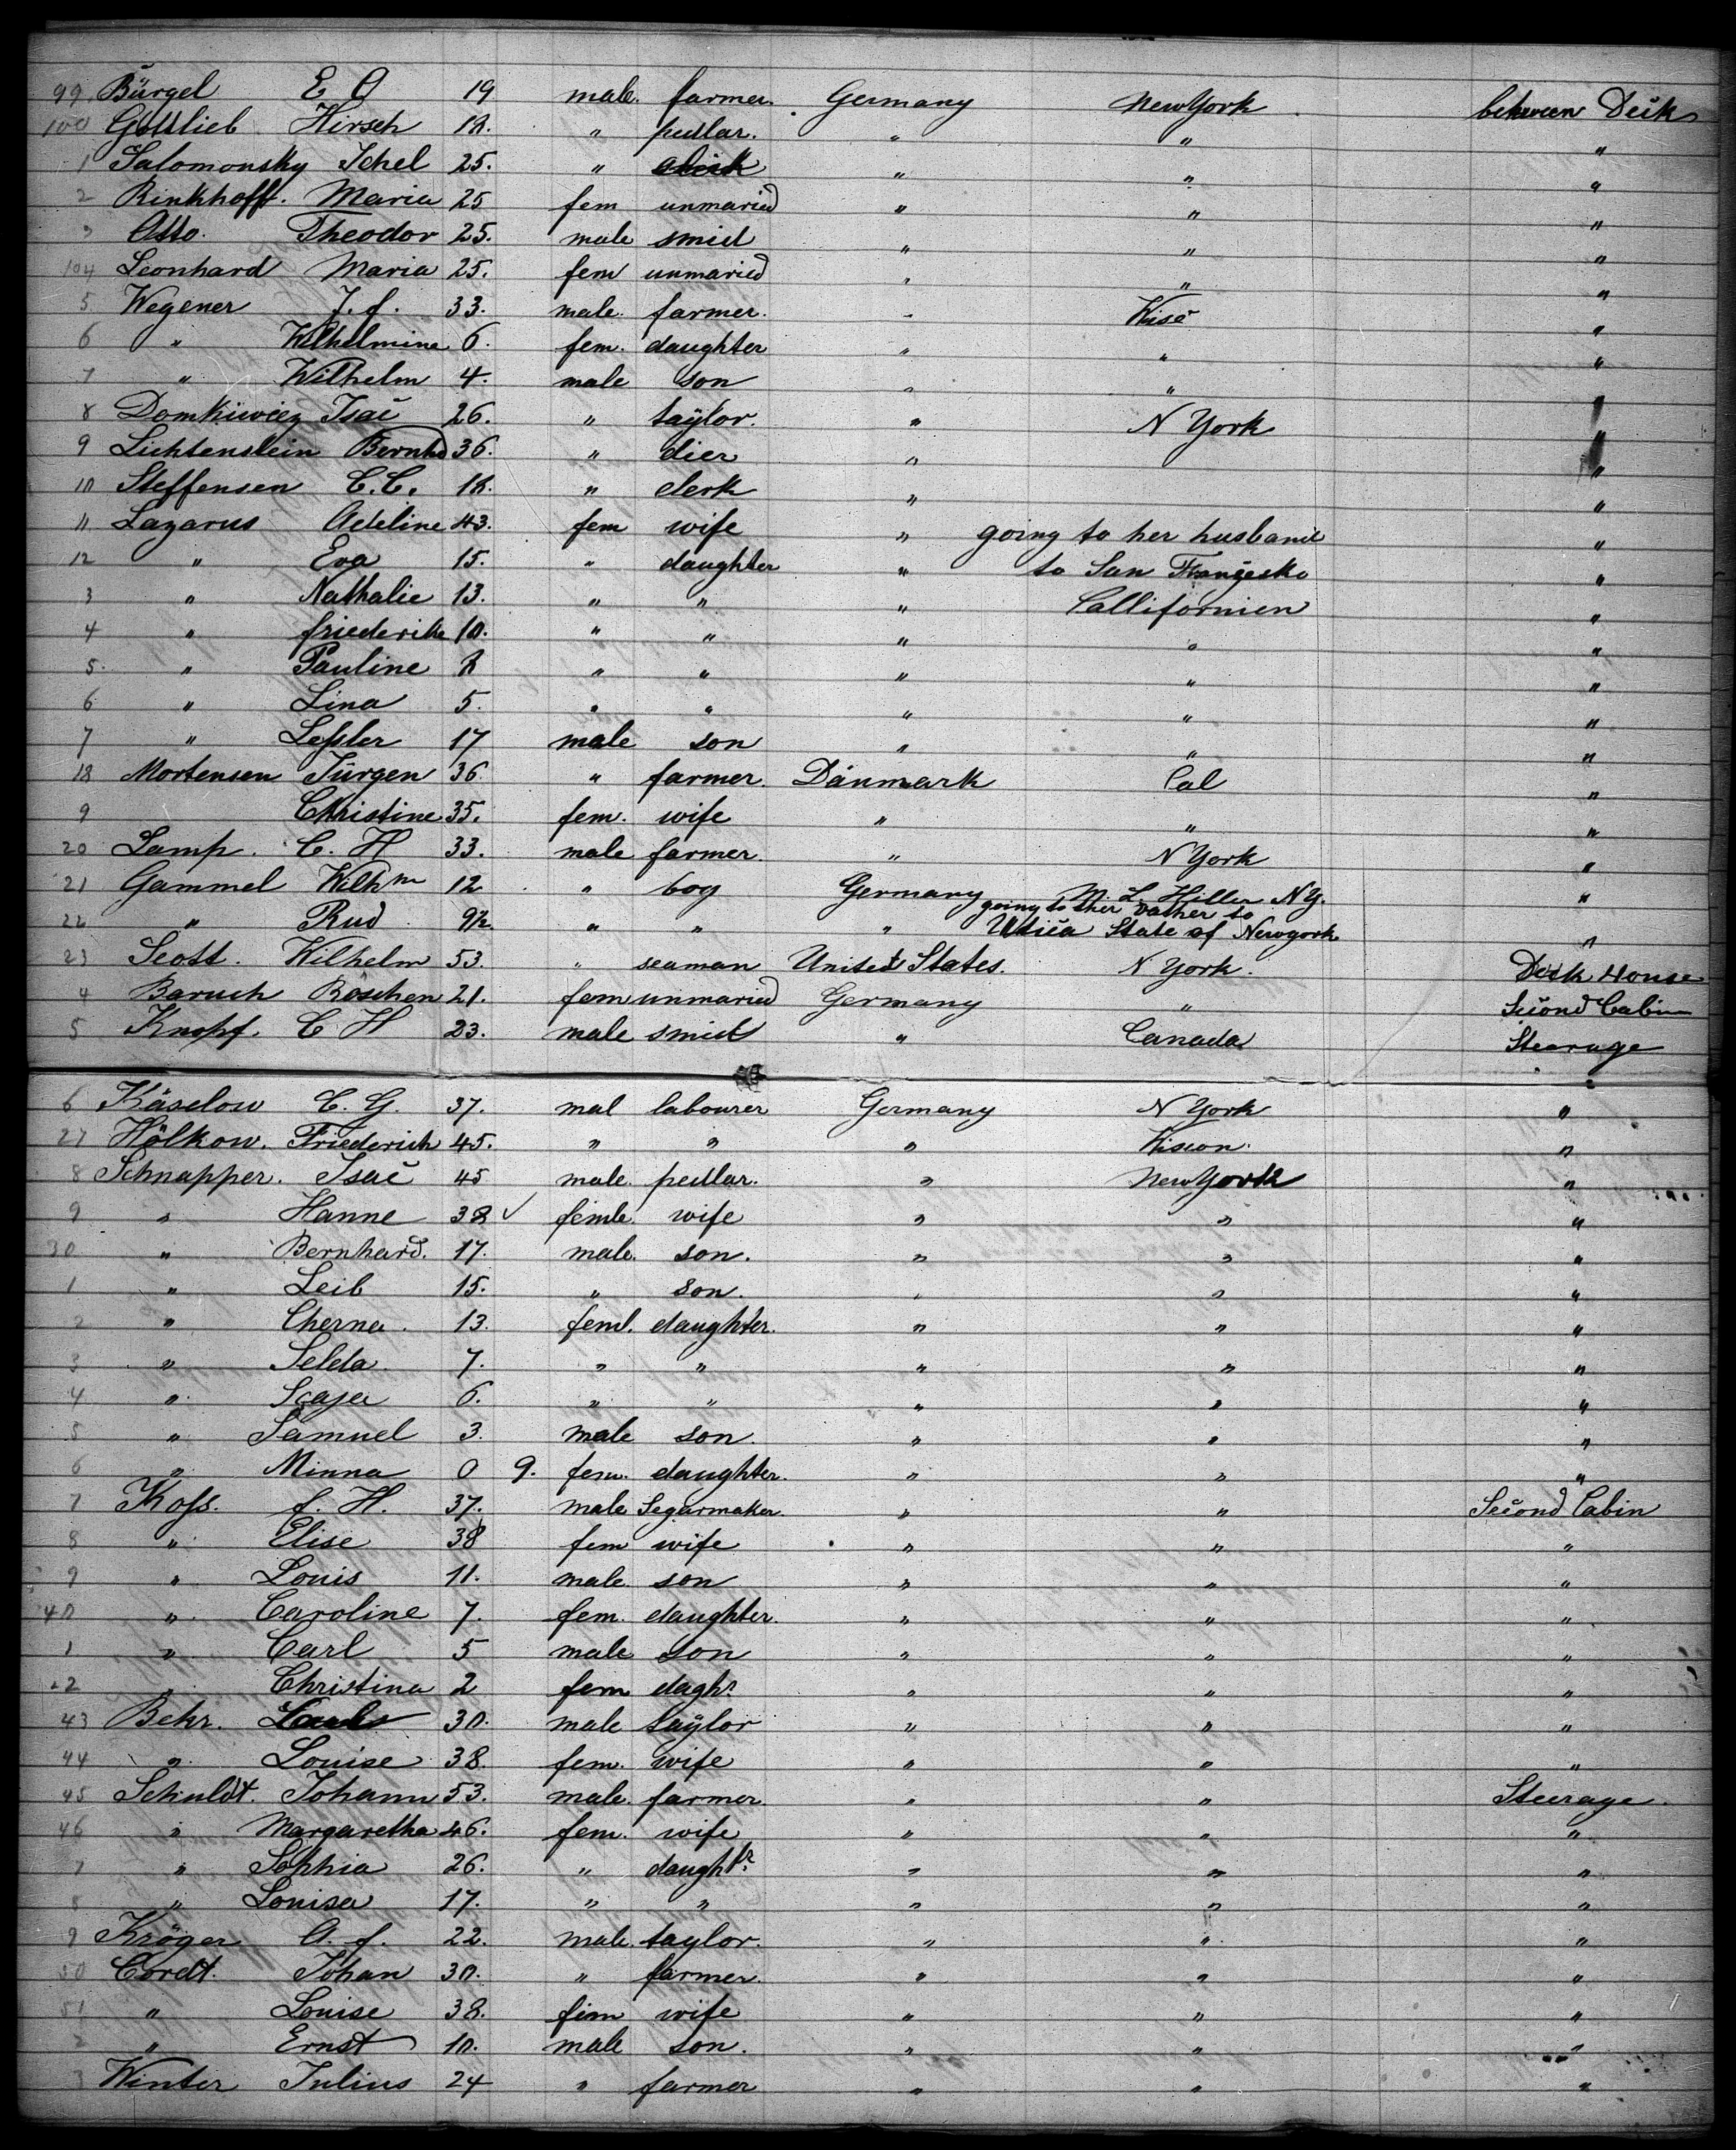 99. Bürgel E O 19 male. farmer. Germany NewYork between Deck
100 Gottlieb Hirsch 18. " pedlar. " " "
1 Salomonsky Ichel 25. " " " "
2 Rinkhoff. Maria 25 fem unmaried " " "
3 Otto. Theodor 25. male smid " " "
104 Leonhard Maria 25. fem unmaried " " "
5 Wegener J. f. 33. male. farmer. " Wisc "
6 " Wilhelmine 6. fem. daughter " " "
7 " Wilhelm 4. male son " " "
8 Domkiwicz Isac 26. " taylor. " N York "
9 Lichtenstein Bernhd 36. " dier " "
10 Steffensen C. C. 18. " clerk " "
11 Lazarus Adeline 43. fem wife " going to her husband "
12 " Eva 15. " daughter " to San Françesko "
3 " Nathalie 13. " " " Callifornien "
4 " friederike 10. " " " " "
5. " Pauline 8 " " " " "
6 " Lina 5. " " " " "
7 " Leßler 17 male son " " "
18 Mortensen Jürgen 36. " farmer. Dänmark Cal "
9 Christine 35. fem. wife " " "
20 Lamp. C. H 33. male farmer. " N York "
21 Gammel Wilhm 12 " boy Germany M. L. Hiller N Y. "
going to ther Vather to
22 " Rud 9½. " " " Utica State of Newyork "
23 Scott. Wilhelm 53. " seaman United States. N York. Deck House
4 Baruch Röschen 21. fem unmaried Germany " Second Cabin
5 Knopf. C H 23. male smid " Canada Stearage
6 Käselow C. G. 37. mal labourer Germany N York "
27 Hölkow. Friederich 45. " " " Wiscon. "
8 Schnapper. Isac 45 male. pedlar. " New York "
9 " Hanne 38 ✓ femle. wife " " "
30 " Bernhard. 17. male. son. " " "
1 " Leib 15. " son. " " "
2 " Cherna. 13. feml. daughter. " " "
3 " Selda. 7. " " " " "
4 " 6. " " " " "
5 " Samuel 3. male son. " " "
6 " Minna 0 9. fem. daughter. " " "
7 Koß. f. H. 37. male Segarmaker. " " Second Cabin
8 " Elise 38 fem wife " " "
9 " Louis 11. male. son " " "
40 " Caroline 7. fem. daughter. " " "
1 " Carl 5 male son " " "
42 " Christina 2 fem daghr. " " "
43 Behr. 30. male taylor " " "
44 " Louise 38. fem. wife " " "
45 Schuldt. Johann 53. male. farmer. " " Steerage.
46 " Margaretha 46. fem. wife " " "
7 " Sophia 26. " daughtr. " " "
8 " Louisa 17. " " " " "
9 Kröger O. f. 22. male. taylor. " " "
50 Cordt. Johan 30. " farmer. " " "
51 " Louise 38. fem wife " " "
2 " Ernst 10. male son. " " "
3 Winter Julius 24 " farmer " " "